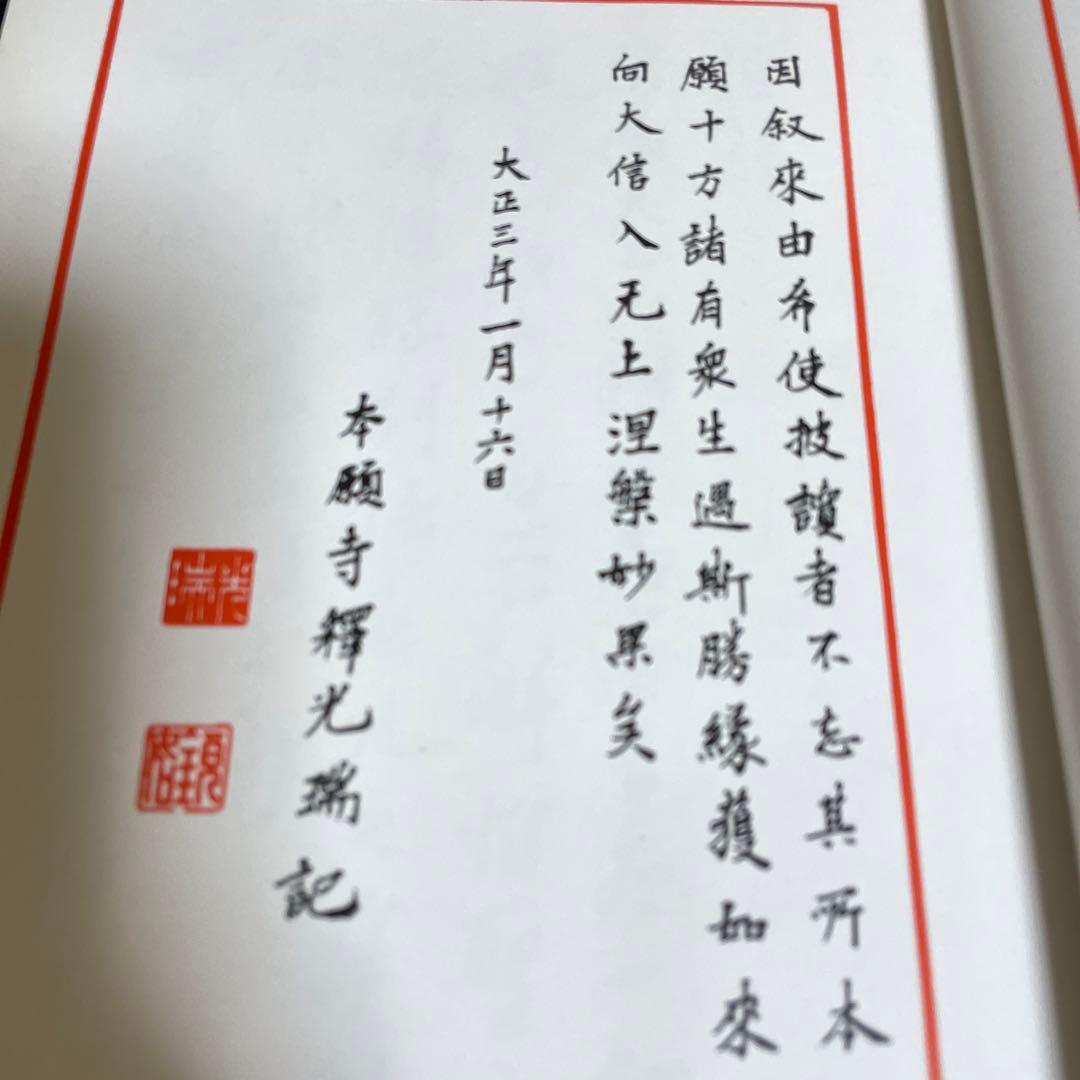 因叙來由希使披讀者不忘其所本
願十方諸有衆生遇斯勝緣獲如來
向大信入无上涅槃妙果矣
大正三年一月十六日
本願寺釋光瑞記
光瑞